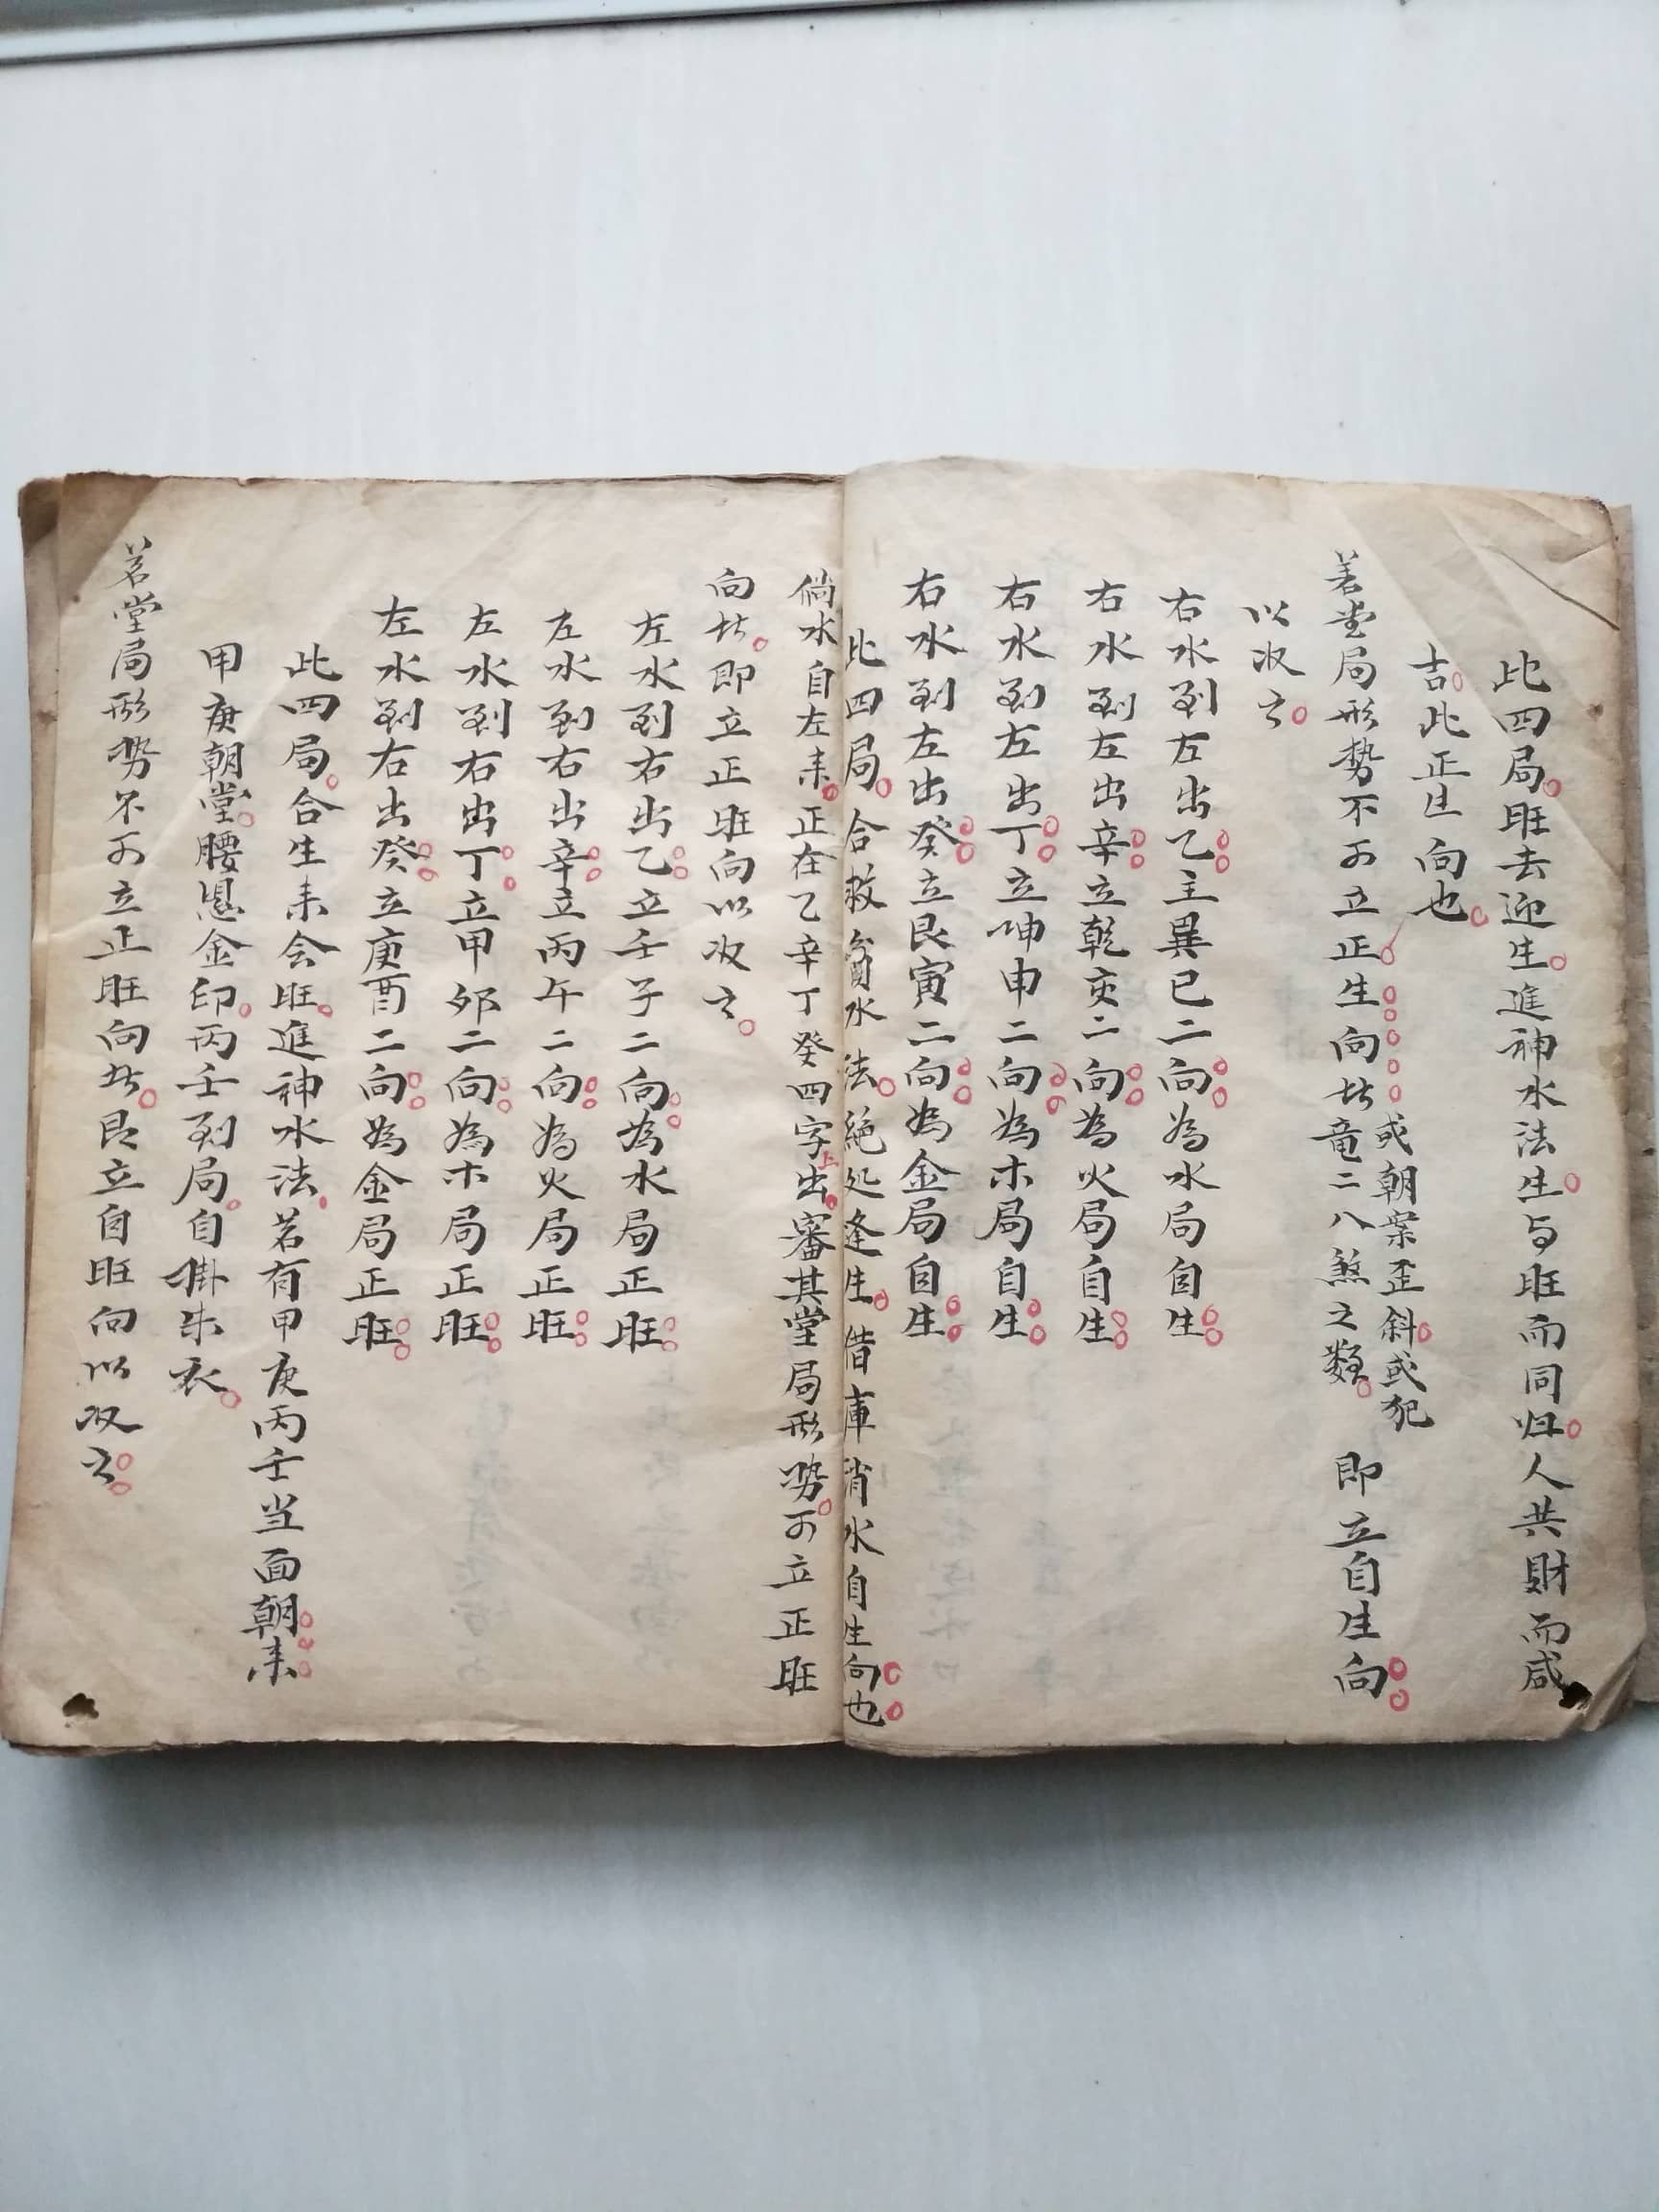 此四局旺去迎生進神水法生与旺而同归人共財而咸
吉此正生向也
若堂局形势不可立正生向者或朝案歪斜或犯竜二八煞之類即立自生向
以收之
右水到左出乙立巽巳二向為水局自生
右水到左出辛立乾亥二向為火局自生
右水到左出丁立坤申二向為木局自生
右水到左出癸立艮寅二向為金局自生
此四局合救貧水法絕処逢生借庫消水自生向也
倘水自左耒正在乙辛丁癸四字上出審其堂局形势可立正旺
向者即立正旺向以收之
左水到右出乙立壬子二向為水局正旺
左水到右出辛立丙午二向為火局正旺
左水到右出丁立甲卯二向為木局正旺
左水到右出癸立庚酉二向為金局正旺
此四局合生耒会旺進神水法若有甲庚丙壬当面朝耒
甲庚朝堂腰悬金印丙壬到局自掛朱衣
若堂局形势不可立正旺向者即立自旺向以收之